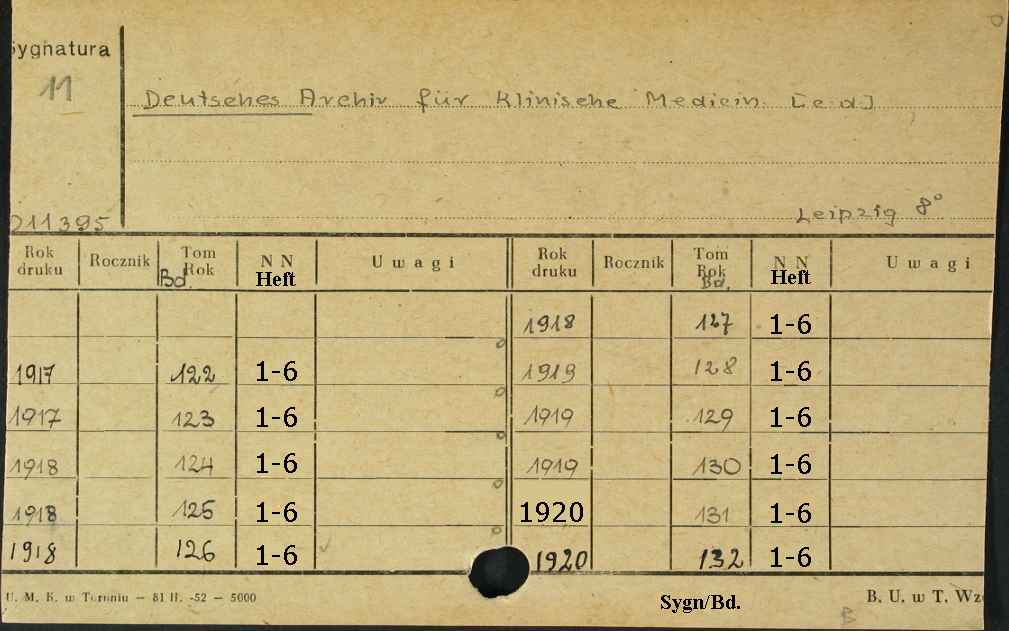 Sygnatura
11
Deutsches Archiv für Klinische Medicin. [e.d]
Leipzig 8°
011395
Rok druku Rocznik Tom Rok Bd. NN Heft Uwagi Rok druku Rocznik Tom Rok Bd. NN Heft Uwagi
1918 127 1-6
1917 122 1-6 1919 128 1-6
1917 123 1-6 1919 129 1-6
1918 124 1-6 1919 130 1-6
1918 125 1-6 1920 131 1-6
1918 126 1-6 1920 132 1-6
U. M. K. w Toruniu — 81 II. -52 — 5000
Sygn/Bd.
B. U. w T. Wz
B